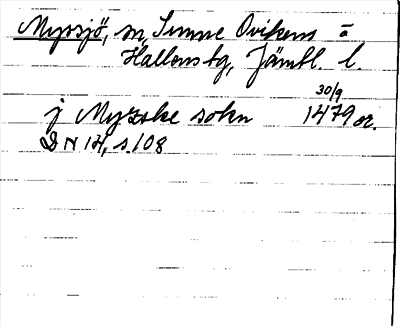 Myrsjö, sn, Sunne Ovikens o
Hallens tg, Jämtl. l.
30/9
j Myrske sokn 1479 or.
DN 14, s. 108